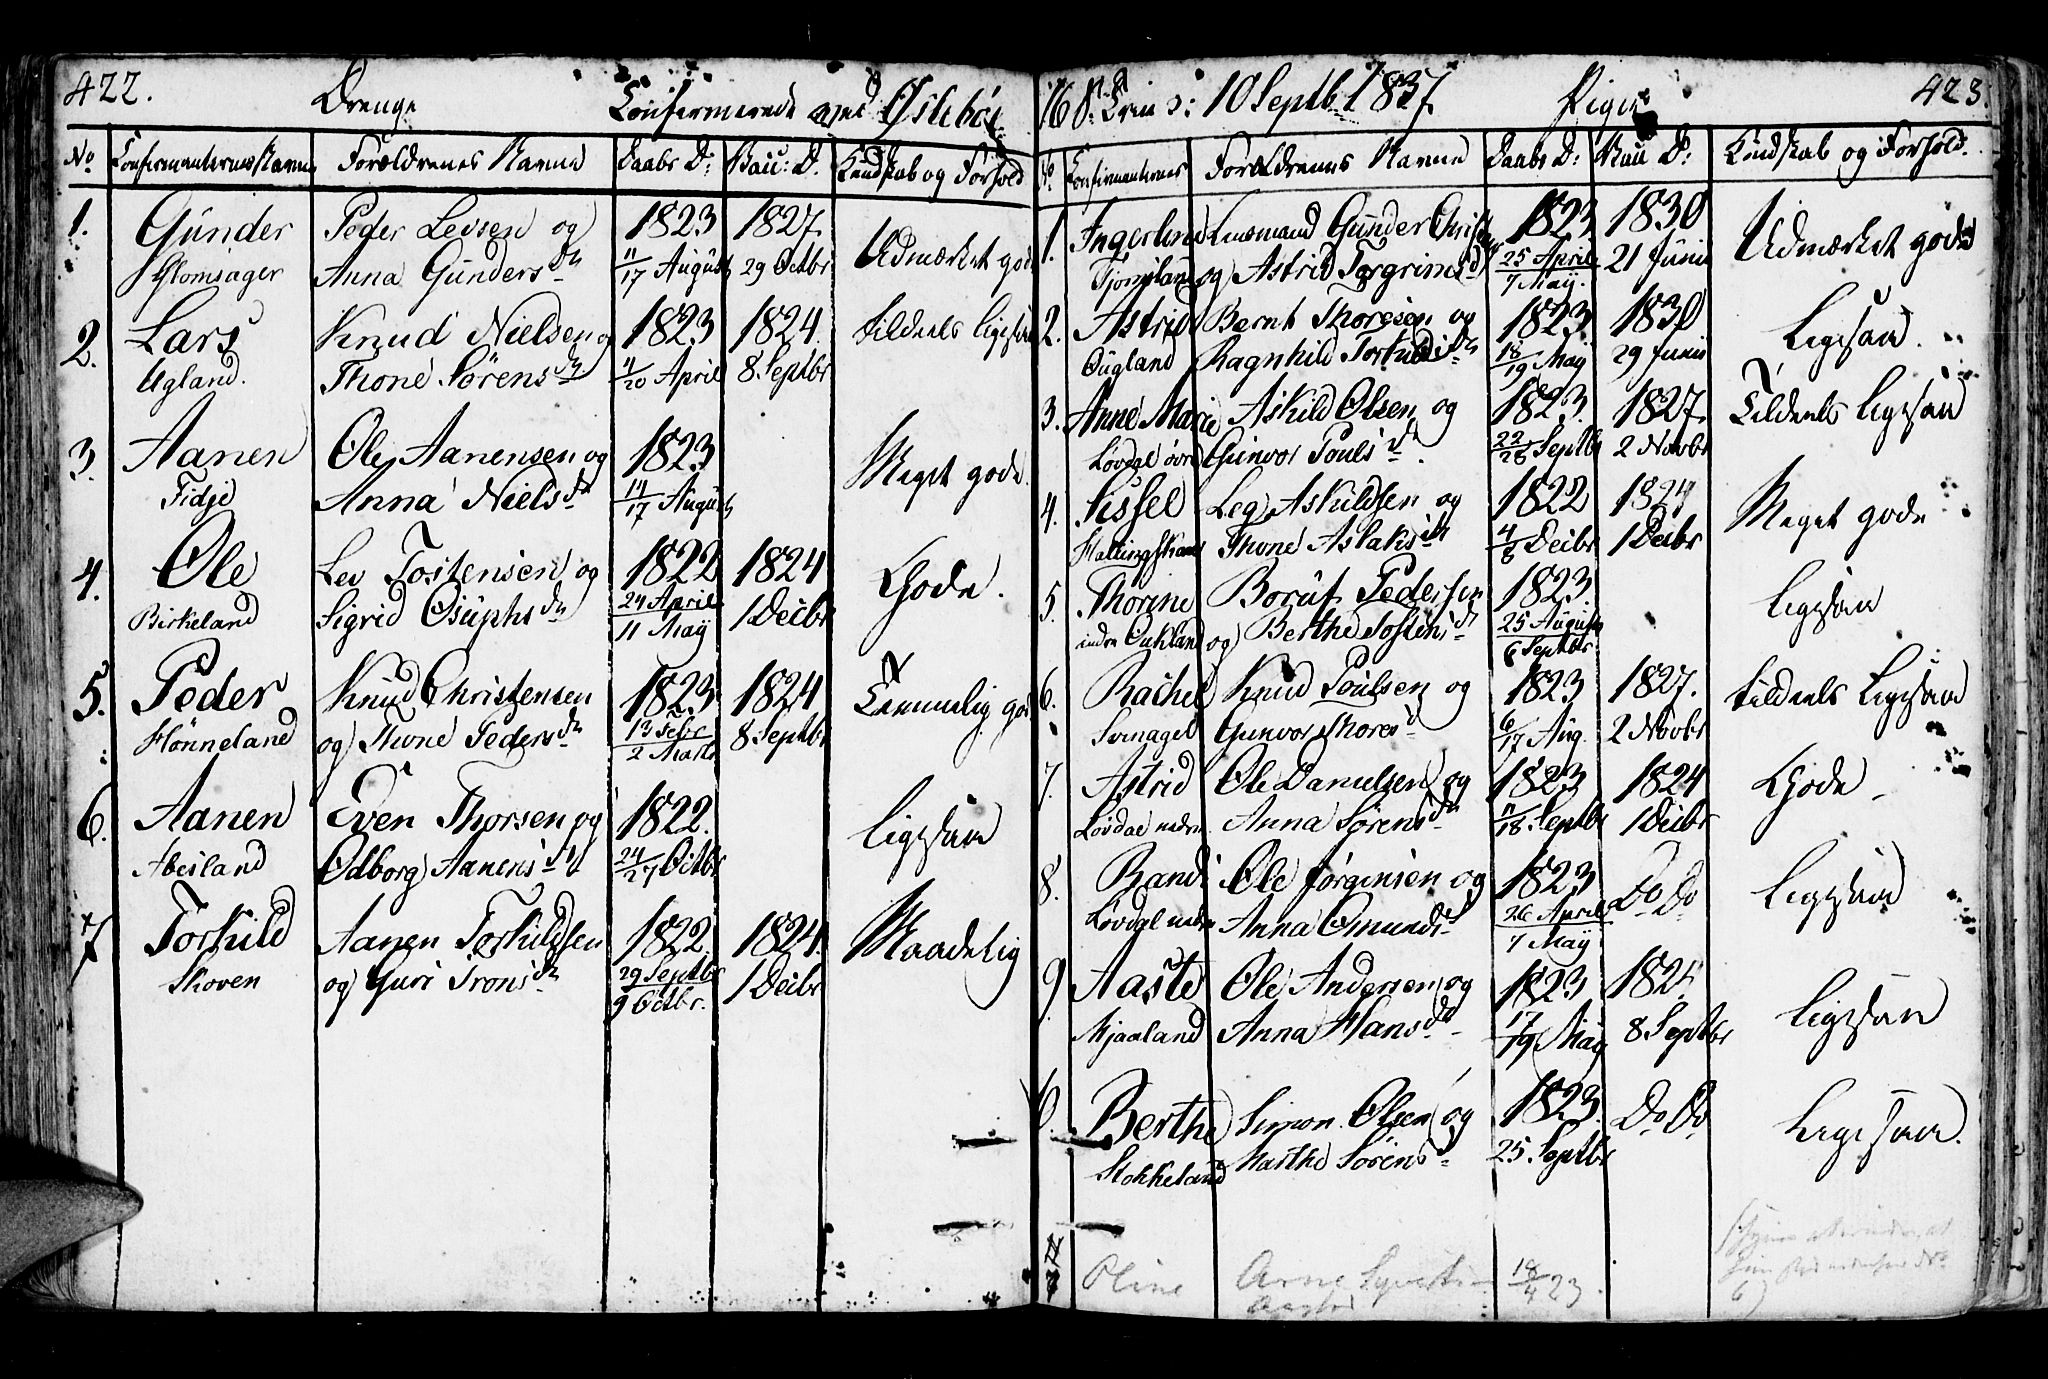 422.
Drenge
Confirmerede ved Øslebøe
No
Confirmanternes Navne
Forældrenes Navne
Daabs D:
Vacc: D.
Kundskab og Forhold
1.
Gunder
Glomsager
Peder Levsen og
Anna Gundersdtr
1823
11/17 August
1827.
29 Octbr
Udmærket gode
2.
Lars
Ugland.
Knud Nielsen og
Thone Sørensdtr
1823
11/20 April
1824.
8 Septbr
Tildeels ligesaa
3.
Aanen
Fidje
Ole Aanensen og
Anna Nielsdtr
1823
14/17 August
Meget gode
4.
Ole
Birkeland
Lev Tostensen og
Sigrid Osuphsdtr
1822
24 April
11 May
1824
1 Decbr
Gode.
5.
Peder
Hønneland
Knud Christensen
og Thone Pedersdtr
1823
13 Febr
2 Marts
1824
8 Septbr
Temmelig gode
6.
Aanen
Abesland
Even Thorsen og
Odborg Aanensdtr
1822.
24/27 Octbr
ligesaa
7
Torkild
Skoven
Aanen Torkildsen
og Guri Tronsdtr
1822.
29 Septbr
9 Octbr.
1824.
1 Decbr
Maadelig
423.
10 Septb. 1837
Piger
No
Confirmanternes
Forældrenes Navne
Daabs D:
Vacc D:
Kundskab og Forhold.
1.
Ingerline
Lensmand Gunder
og Astrid Torgrimsd
1823
25 April
7 May.
1830
21 Junii
Udmærket gode
2.
Astrid
Ougland
Bernt Thoresen og
Ragnhild Torkildsdtr
1823
18/19 May
1830
29 Junii
Ligesaa.
3.
Anne Marie
Løvdal øvre
Askild Olsen og
Gunvor Poulsdtr.
1823.
22/28 Septb
1827.
2 Novbr
Tildeels ligesaa
4.
Sissel
Leg Askildsen og
Thone Aslaksdtr
1822
4/8 Decbr
1824
1 Decbr
Meget gode
5
Thorine
indre Oukland
Boruf Pedersen
og Berthe Tostensdtr
1823
25 August
6 Septbr
ligesaa
6.
Rachel
Svenagel
Knud Poulsen og
Gunvor Thoresd
1823
6/17 Aug.
1827.
2 Novbr
Tildeels ligesaa
7.
Astrid
Løvdal nedre
Ole Danielsen og
Anna Sørensdtr
1823
11/18 Septbr
1824
1 Decbr
Gode
8.
Randi
Løvdal nedre
Ole Jørgensen og
Anna Omundsd
1823
26 April
7 May
Do Do
Ligesaa
9
Aaste
Mjaaland
Ole Andersen og
Anna Hansdtr
1823
17/19 May
1824.
8 Septbr
ligesaa
Berthe
Stokkeland
Simon Olsen og
Marthe Sørens
1823.
25 Septbr
Do Do
Ligesaa.
Oline
Arne
18/4 23.